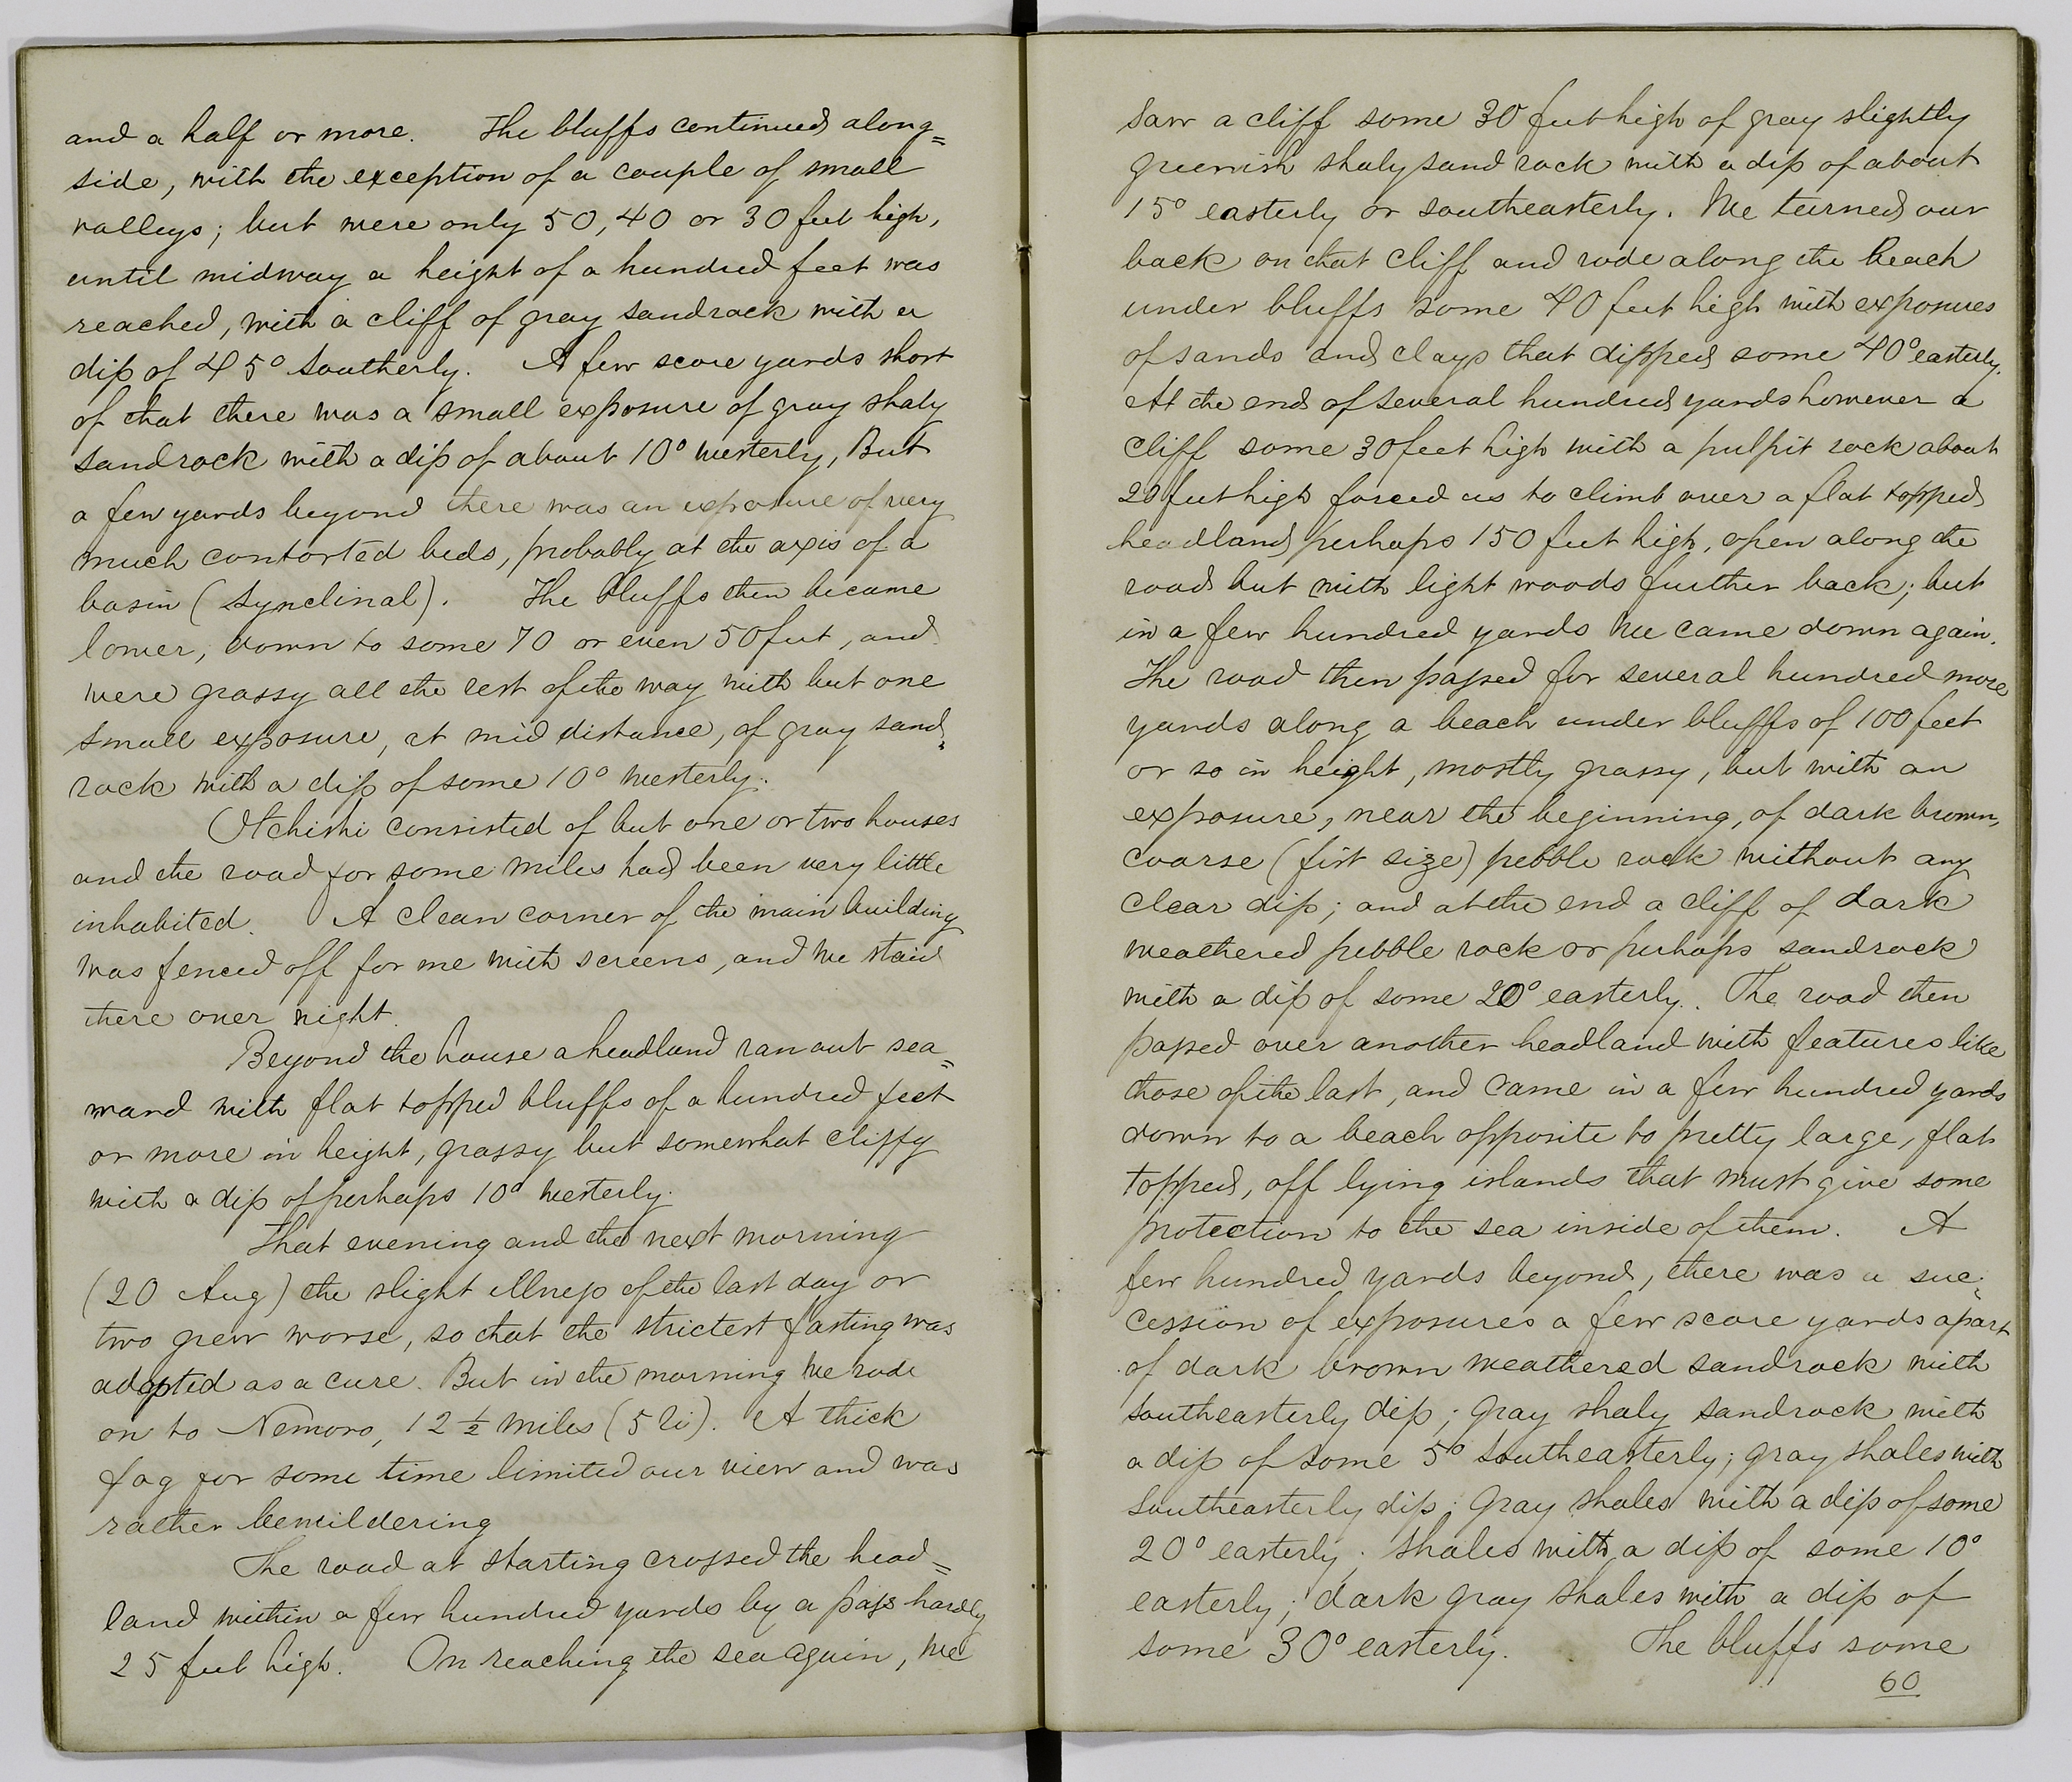 and a half or more. The bluffs continued along=
side, with the exception of a couple of small
valleys; but were only 50, 40 or 30 feet high,
until midway a height of a hundred feet was
reached, with a cliff of gray sandrock with a
dip of 45° southerly. A few score yards short
of that there was a small exposure of gray shaly
sandrock with a dip of about 10° westerly, But
a few yards beyond there was an exposure of very
much contorted beds, probably at the axis of a
basin (Synclinal). The bluffs then became
lower, down to some 70 or even 50 feet, and
were grassy all the rest of the way with but one
small exposure, at mid distance, of gray sand=
rock with a dip of some 10° westerly.
Otchishi consisted of but one or two houses
and the road for some miles had been very little
inhabited. A clean corner of the main building
was fenced off for me with screens, and we staid
there over night.
Beyond the house a headland ran out sea=
ward with flat topped bluffs of a hundred feet
or more in height, grassy but somewhat cliffy
with a dip of perhaps 10° westerly.
That evening and the next morning
(20 Aug) the slight illness of the last day or
two grew worse, so that the strictest fasting was
adopted as a cure. But in the morning we rode
on to Nemoro, 12 ½ miles (5 li). A thick
fog for some time limited our view and was
rather bewildering
The road at starting crossed the head=
land within a few hundred yards by a pass hardly
25 feet high. On reaching the sea again, we
saw a cliff some 30 feet high of gray slightly
greenish shaly sand rock with a dip of about
15° easterly or southeasterly. We turned our
back on that cliff and rode along the beach
under bluffs some 40 feet high with exposures
of sands and clays that dipped some 40° easterly.
At the end of several hundred yards however a
cliff some 30 feet high with a pulpit rock about
20 feet high forced us to climb over a flat topped
headland perhaps 150 feet high, open along the
road but with light woods further back; but
in a few hundred yards we came down again.
The road then passed for several hundred more
yards along a beach under bluffs of 100 feet
or so in height, mostly grassy, but with an
exposure, near the beginning, of dark brown,
coarse (fist size) pebble rock without any
clear dip; and at the end a cliff of dark
weathered pebble rock or perhaps sandrock
with a dip of some 20° easterly. The road then
passed over another headland with features like
those of the last, and came in a few hundred yards
down to a beach opposite to pretty large, flat
topped, off lying islands that must give some
protection to the sea inside of them. A
few hundred yards beyond, there was a suc=
cession of exposures a few score yards apart
of dark brown weathered sandrock with
southeasterly dip; gray shaly sandrock with
a dip of some 5° southeasterly; gray shales with
southeasterly dip; gray shales with a dip of some
20° easterly; shales with a dip of some 10°
easterly; dark gray shales with a dip of
some 30° easterly. The bluffs some
60